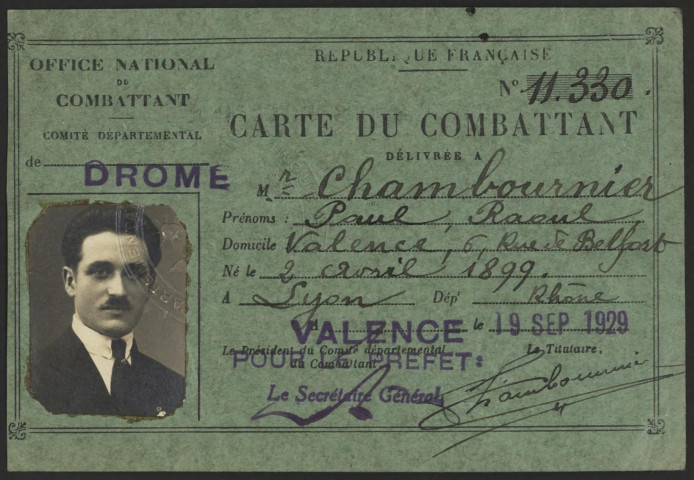 OFFICE NATIONAL
DU
COMBATTANT
COMITÉ DÉPARTEMENTAL
de DROME
REPUBLIQUE FRANÇAISE
N° 11.330.
CARTE DU COMBATTANT
DÉLIVRÉE A
Mr Chambournier
Prénoms : Paul, Raoul
Domicile Valence, 6, Rue de Belfort
Né le 2 Avril 1899.
A Lyon Dépt Rhône
A VALENCE le 19 SEP 1929
Le Président du Comité départemental
du Combattant
POUR LE PREFET:
Le Secrétaire Général,
Le Titulaire,
Chambournier